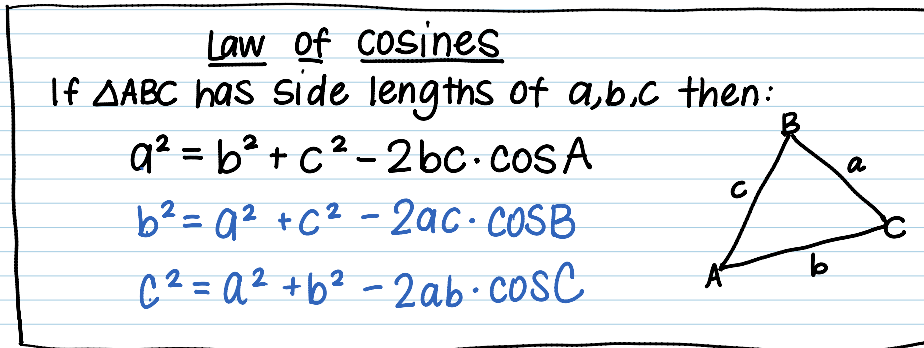 Law of cosines
If △ABC has side lengths of a,b,c then:
a² = b² + c² - 2bc · cosA
b² = a² + c² - 2ac · cosB
c² = a² + b² - 2ab · cosC
B
c
a
C
A
b